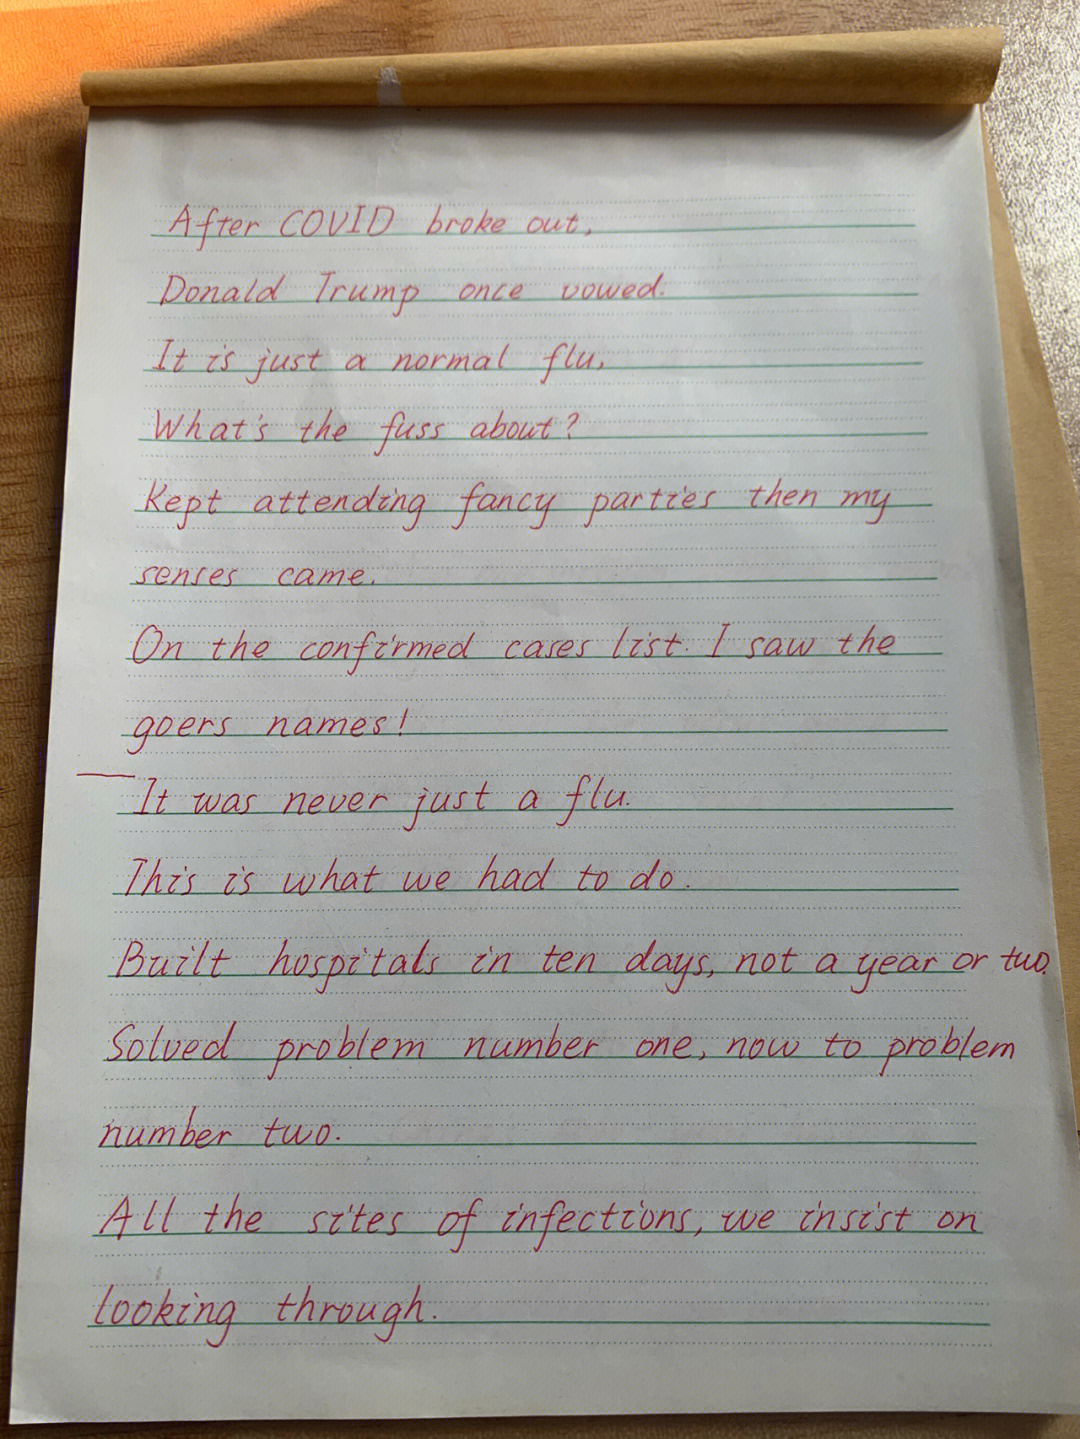 After COVID broke out,
Donald Trump once vowed.
It is just a normal flu,
What's the fuss about?
Kept attending fancy parties then my
senses came.
On the confirmed cases list. I saw the
goers names!
It was never just a flu.
This is what we had to do.
Built hospitals in ten days, not a year or two.
Solved problem number one, now to problem
number two.
All the sites of infections, we insist on
looking through.